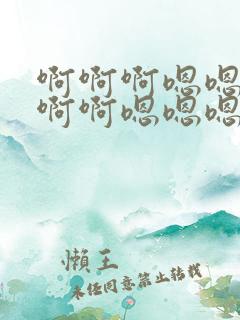 啊啊啊嗯嗯
啊啊嗯嗯嗯
懶王
未经同意禁止转载